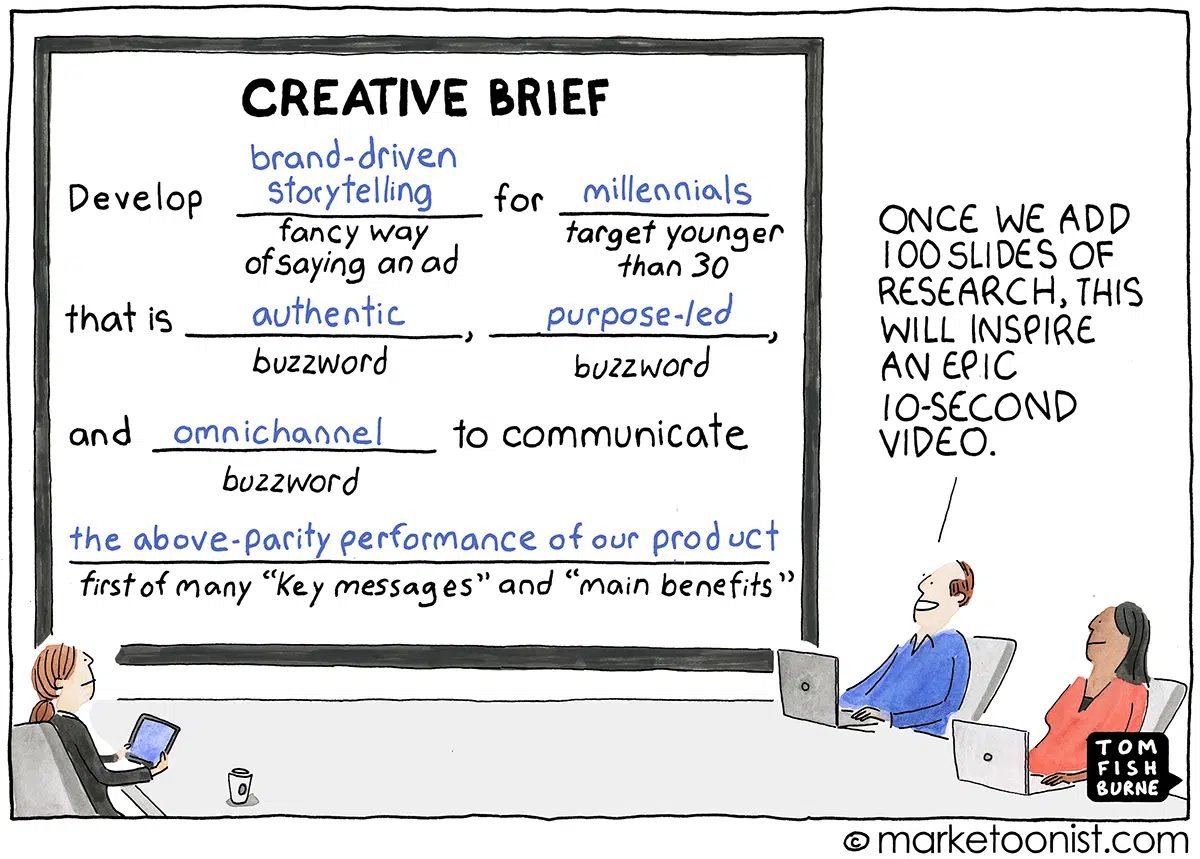 CREATIVE BRIEF
brand-driven
Develop storytelling for millennials
fancy way target younger
of saying an ad than 30
that is authentic, purpose-led,
buzzword buzzword
and omnichannel to communicate
buzzword
the above-parity performance of our product
first of many "key messages" and "main benefits"
ONCE WE ADD
100 SLIDES OF
RESEARCH, THIS
WILL INSPIRE
AN EPIC
10-SECOND
VIDEO.
TOM
FISH
BURNE
© marketoonist.com